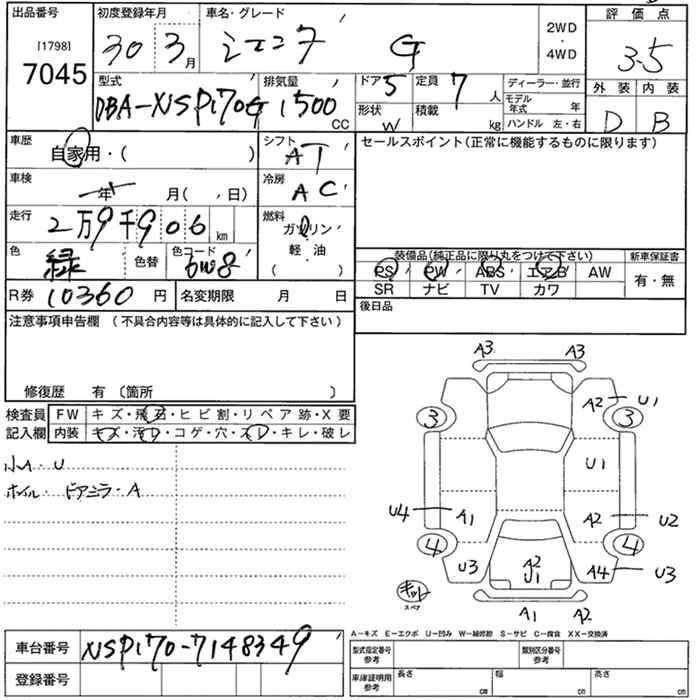 出品番号 初度登録年月 車名・グレード 2WD・4WD 評価点
[1798]
7045
30 3月 シエンタ G 3.5
型式 排気量 ドア 5 定員 7人 ディーラー・並行 外装 内装
DBA-NSP170G 1500CC 形状 W 積載 kg モデル年式 年 D B
ハンドル 左・右
車歴 自家用・( ) シフト AT セールスポイント(正常に機能するものに限ります)
車検 年 月( 、日) 冷房 AC
走行 2万9千906km 燃料 ガソリン・軽・油( )
色 緑 色替 色コード 6W8
装備品(純正品に限り丸をつけて下さい) 新車保証書
PS PW ABS エアB AW 有・無
SR ナビ TV カワ
R券 10360円 名変期限 月 日 後日品
注意事項申告欄(不具合内容等は具体的に記入して下さい)
修復歴 有〔箇所 〕
検査員記入欄 FW キズ・飛石・ヒビ割・リペア跡・X要
内装 キズ・汚れ・コゲ・穴・スレ・キレ・破レ
小A・U
ホイル・ドアミラ・A
A3 A3
3 A2 U1 3
U1
U4 A1 A2 U2
4 4
U3 A2 U1 A4 U3
キット
スペア
A1 A2
A―キズ E―エクボ U―凹み W―補修跡 S―サビ C―腐食 XX―交換済
車台番号 NSP170-7148349
登録番号
型式指定番号 参考 類別区分番号 参考
車庫証明用 参考 長さ cm 幅 cm 高さ cm